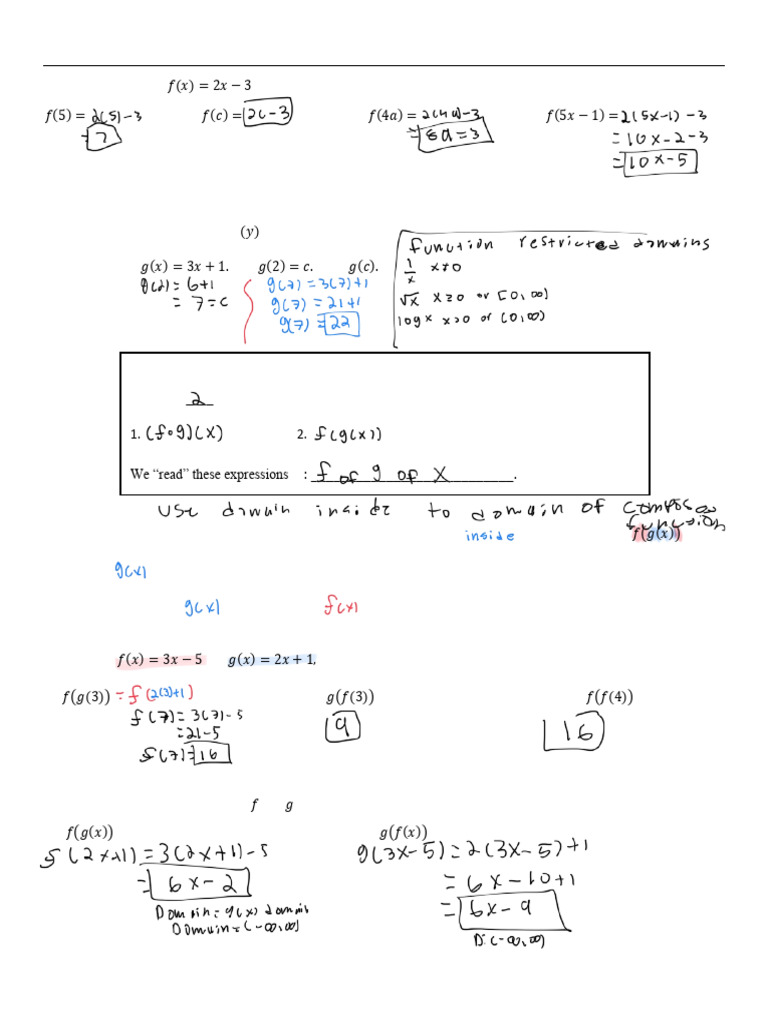 f(x) = 2x − 3
f(5) = 2(5)−3 f(c) = 2c−3 f(4a) = 2(4a)−3 f(5x − 1) = 2(5x−1) −3
= 7 = 8a=3 = 10x−2−3
= 10x−5
(y)
function restricted domains
g(x) = 3x + 1. g(2) = c. g(c).
1/x x≠0
g(2) = 6+1 g(7) = 3(7)+1
= 7=c g(7) = 21+1
√x x≥0 or [0,∞)
g(7) = 22
log x x>0 or (0,∞)
2
1. (f∘g)(x) 2. f(g(x))
We “read” these expressions : f of g of x.
Use domain inside to domain of
function
inside f(g(x))
g(x)
g(x) f(x)
f(x) = 3x − 5 g(x) = 2x + 1,
f(g(3)) = f(2(3)+1) g(f(3)) f(f(4))
f(7) = 3(7)−5 9 16
=21−5
f(7)=16
f g
f(g(x)) g(f(x))
f(2x+1) = 3(2x+1)−5 g(3x−5) = 2(3x−5)+1
= 6x−2 = 6x−10+1
= 6x−9
Domain = g(x) domain
Domain=(−∞,∞)
D:(−∞,∞)